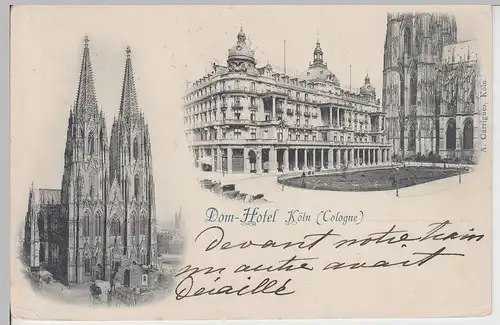 Dom-Hotel Köln (Cologne)
A. Garrigues, Köln.
Devant notre train
un autre avait
déraillé